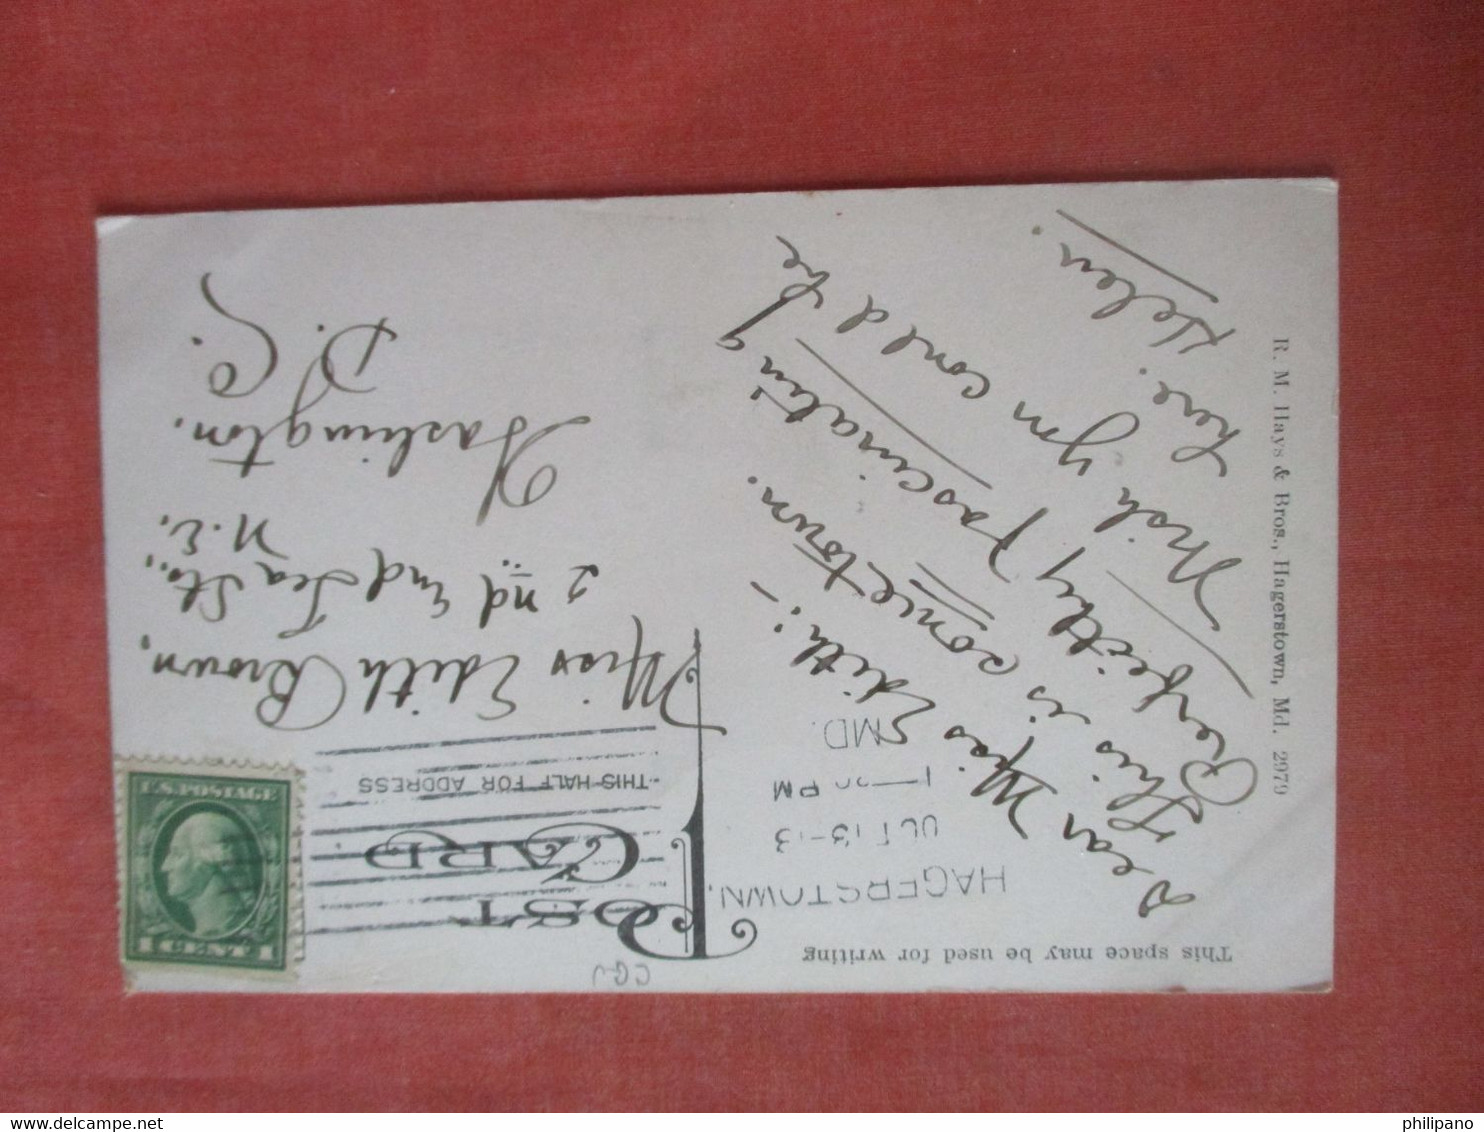 This space may be used for writing
POST CARD
THIS HALF FOR ADDRESS
HAGERSTOWN,
OCT 13-13
PM
MD.
U.S. POSTAGE
1 CENT 1
Dear Miss Edith:-
This is some town.
Perfectly Fascinating
Wish you could be
here.
Helen.
Miss Edith Brown,
2nd and Sts.,
N.E.
Washington.
D.C.
R. M. Hays & Bros., Hagerstown, Md. 2979
CGJ
philipano